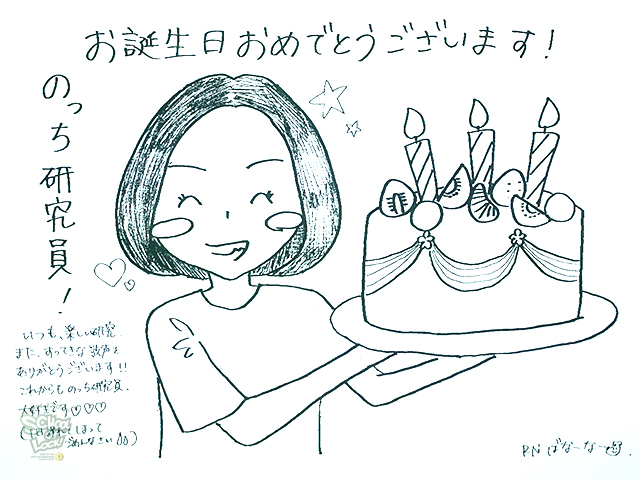 お誕生日おめでとうございます!
のっち研究員!
いつも、楽しい研究
また、すってきな歌声を
ありがとうございます!!
これからも のっち研究員、
大好きです♡♡♡
しまって
ごめんなさい
SCHOOL
OF
LOCK!
RN ばなーなー